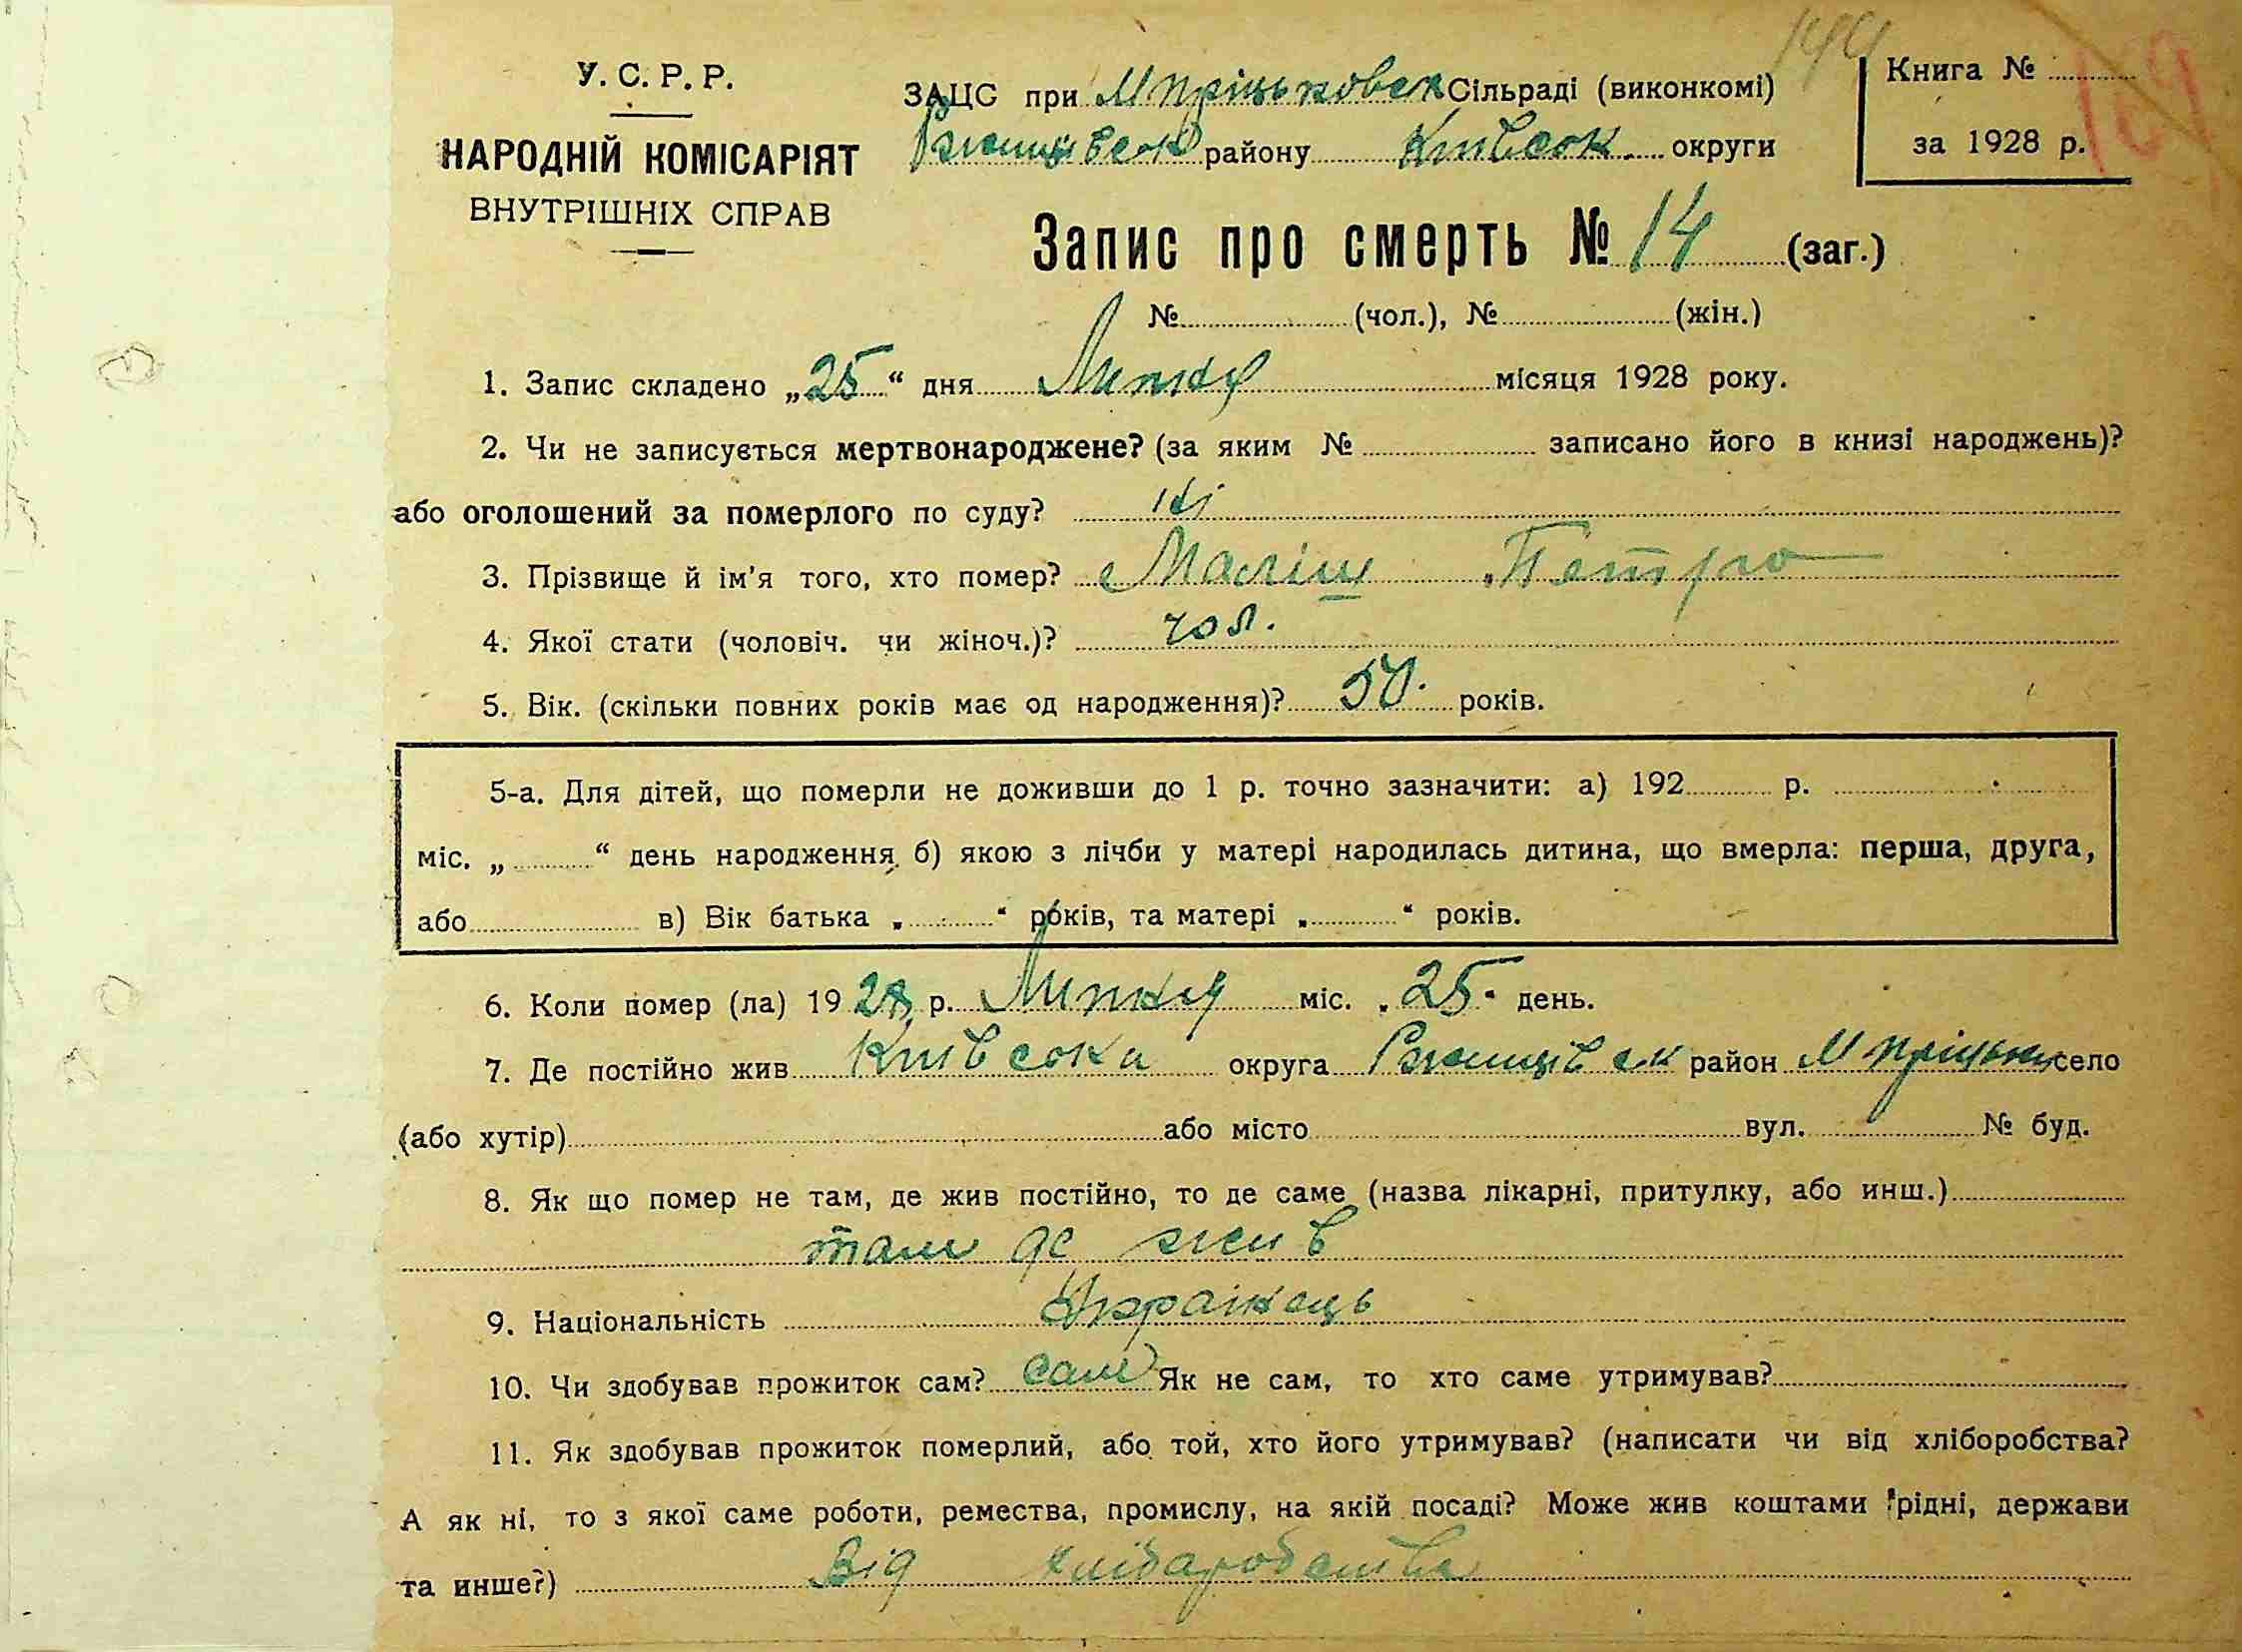 144
У. С. Р. Р.
НАРОДНІЙ КОМІСАРІЯТ
ВНУТРІШНІХ СПРАВ
ЗАЦС при М Пріцьковск Сільраді (виконкомі)
Ржищівськ району Київсок. округи
Книга №
за 1928 р.
Запис про смерть № 14 (заг.)
№ (чол.), № (жін.)
1. Запис складено „25“ дня Липня місяця 1928 року.
2. Чи не записується мертвонароджене? (за яким № записано його в книзі народжень)?
або оголошений за померлого по суду? Ні
3. Прізвище й ім'я того, хто помер? Маліш Петро
4. Якої стати (чоловіч. чи жіноч.)? чол.
5. Вік. (скільки повних років має од народження)? 50. років.
5-а. Для дітей, що померли не доживши до 1 р. точно зазначити: а) 192 р.
міс. „ “ день народження б) якою з лічби у матері народилась дитина, що вмерла: перша, друга,
або в) Вік батька „ “ років, та матері „ “ років.
6. Коли помер (ла) 1928 р. Липня міс. „25“ день.
7. Де постійно жив Київсока округа Ржищівск район М Пріцьки село
(або хутір) або місто вул. № буд.
8. Як що помер не там, де жив постійно, то де саме (назва лікарні, притулку, або инш.)
там де жив
9. Національність Українець
10. Чи здобував прожиток сам? сам Як не сам, то хто саме утримував?
11. Як здобував прожиток померлий, або той, хто його утримував? (написати чи від хліборобства?
А як ні, то з якої саме роботи, ремества, промислу, на якій посаді? Може жив коштами рідні, держави
та инше?) Від хлібаробства